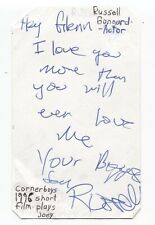 Hey Glenn
Russell
Bongard-
Actor
I love you
more than
you will
ever love
me
Your
fan
Russell
Cornerboys
1996 short
film-plays
Joey